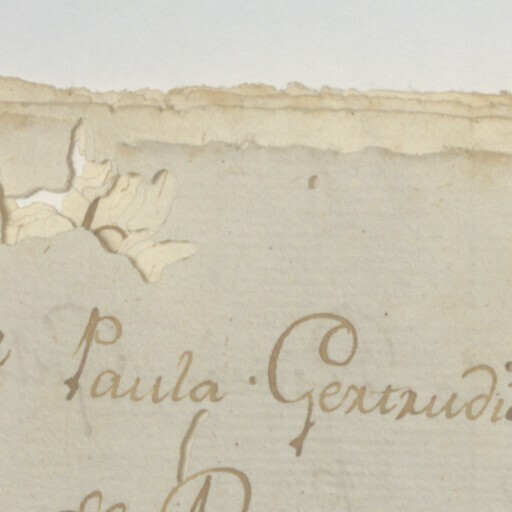 Paula Gertrudi